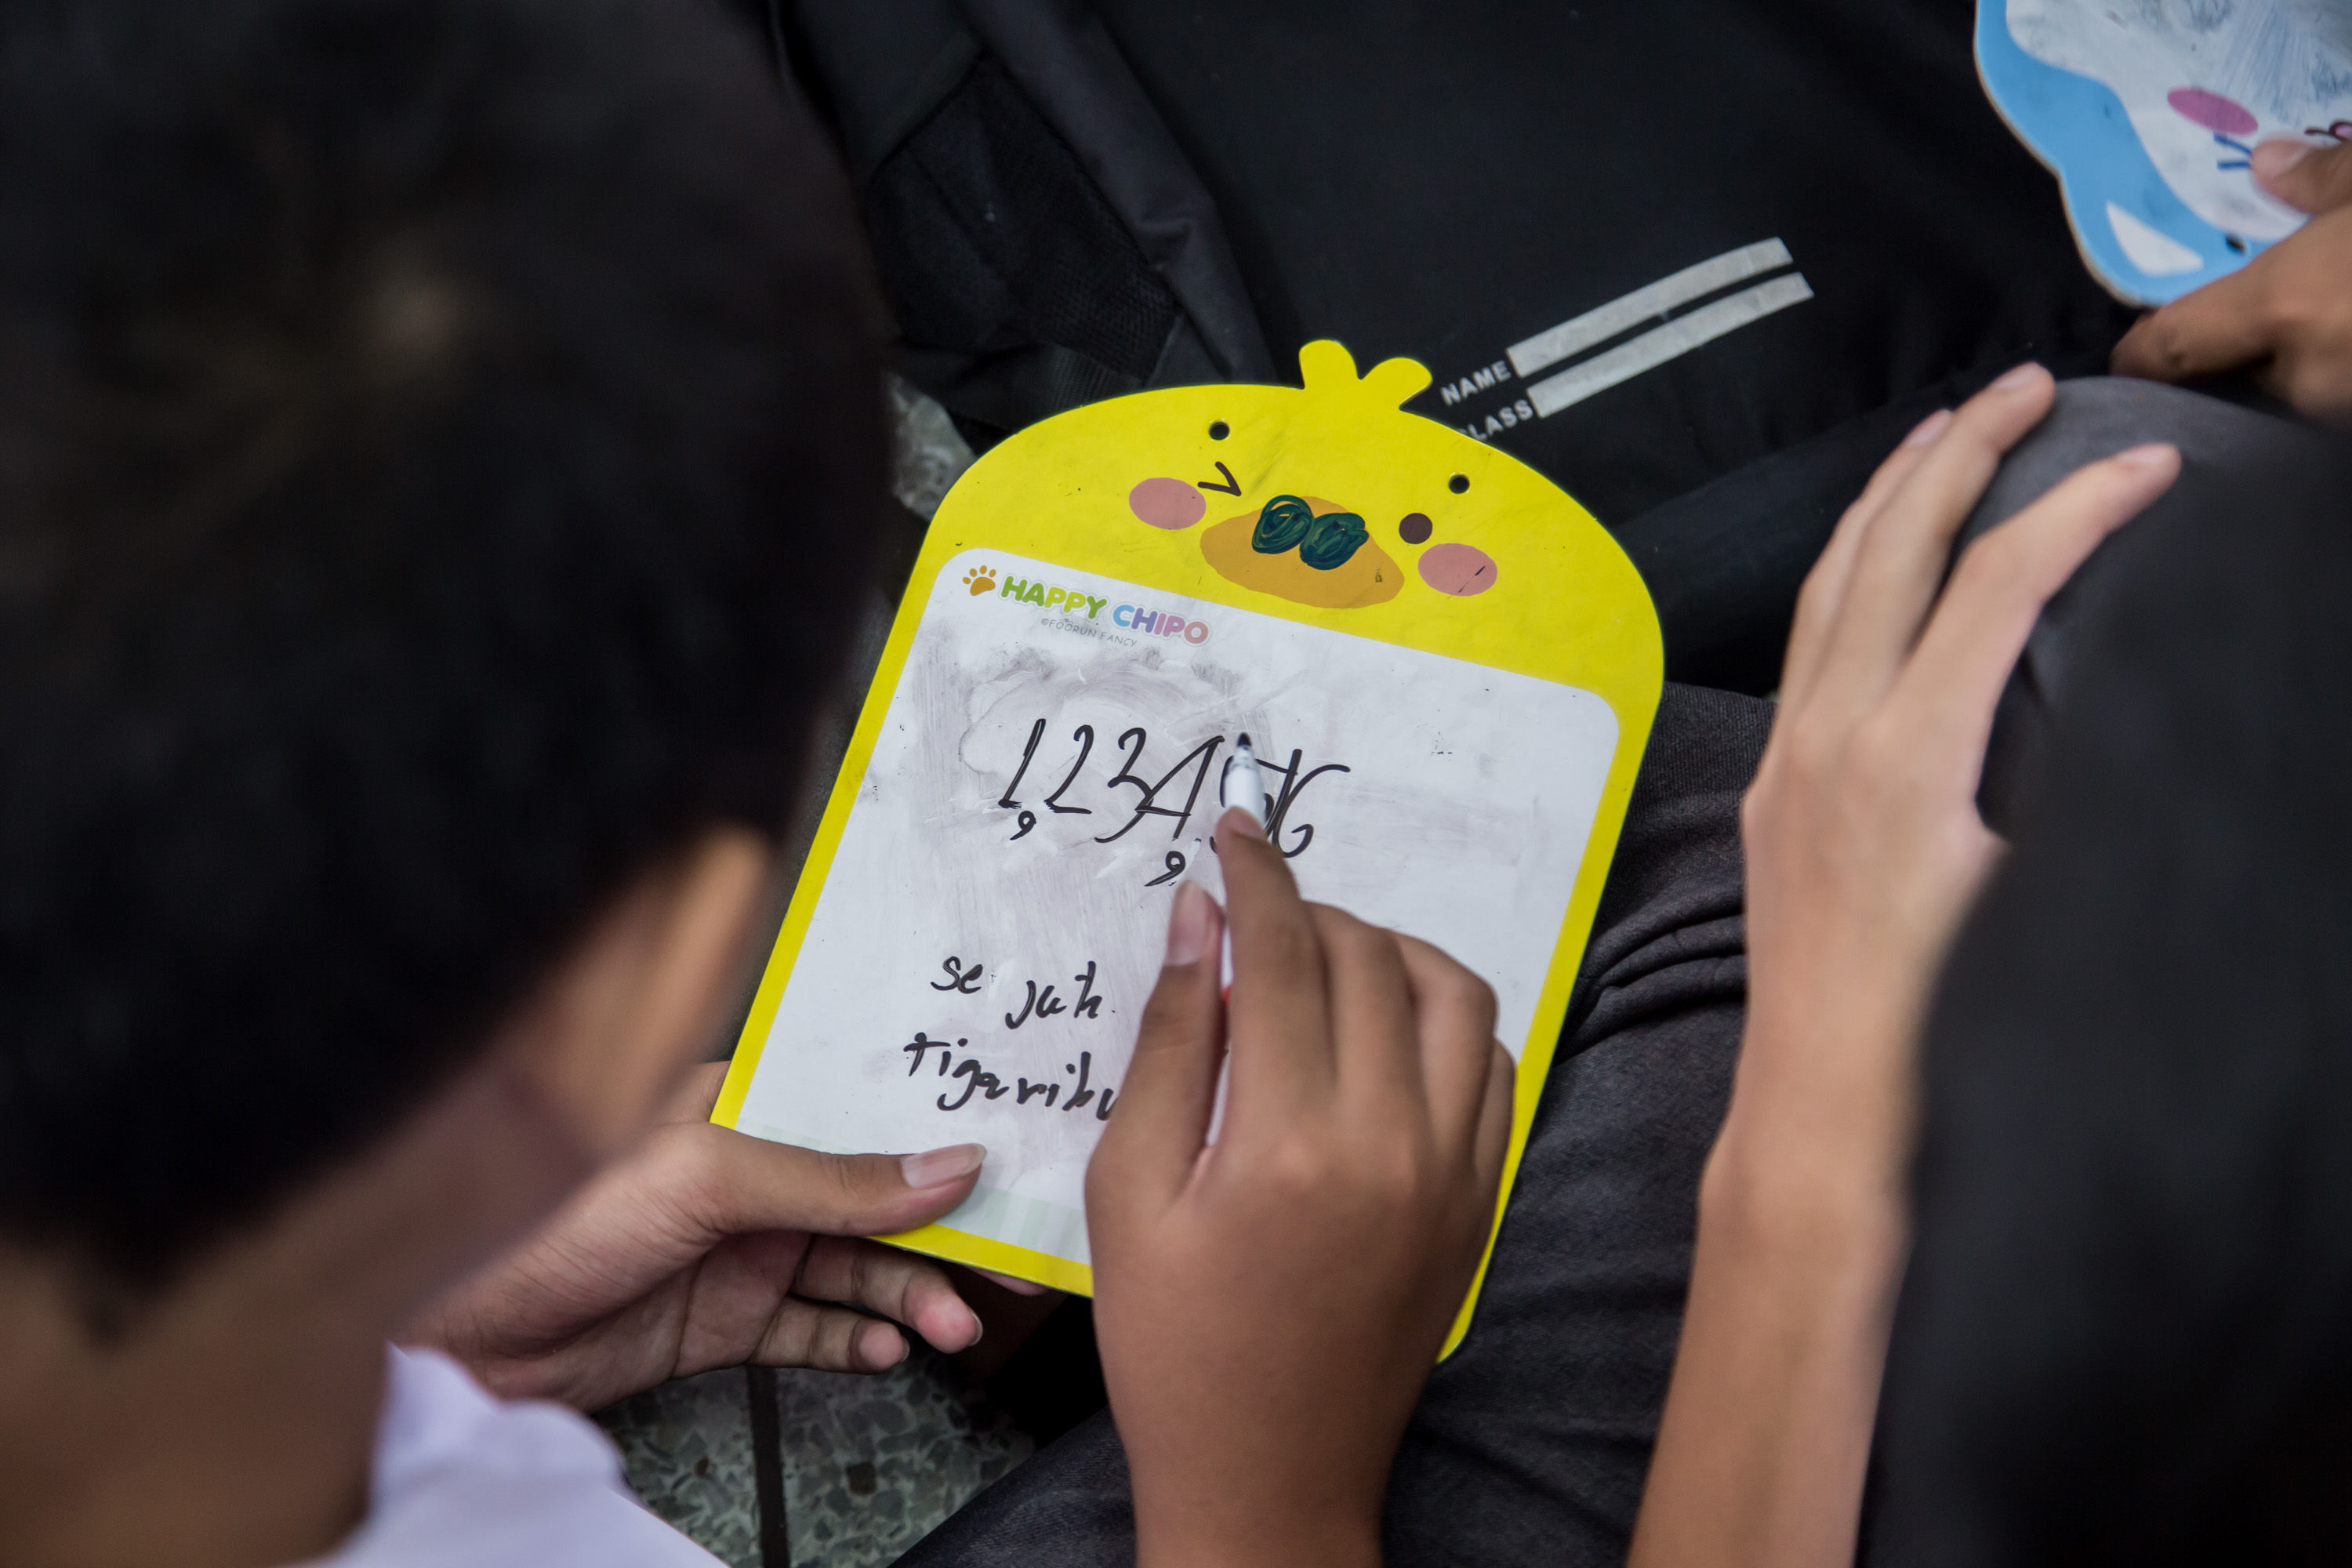 NAME
CLASS
HAPPY CHIPO
©FOORUN FANCY
1,234,
6
se juth
tigaribu